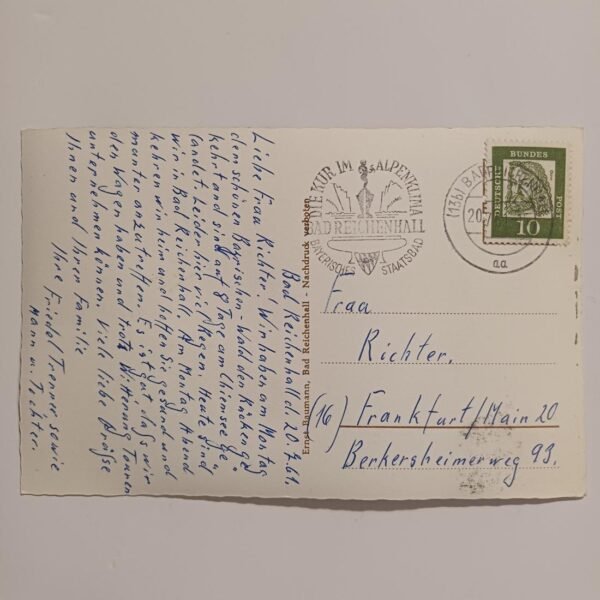 Bad Reichenhall d. 20.7.61.
Liebe Frau Richter! Wir haben am Montag
den schönen Bayrischen-Wald den Rücken ge
kehrt und sind auf 8 Tage am Chiemsee ge
landet. Leider hier viel Regen. Heute sind
wir in Bad Reichenhall. Am Montag Abend
kehren wir heim und hoffen Sie gesund und
munter anzutreffen. Es ist gut das wir
den Wagen haben und trotz Witterung Touren
unternehmen können. Viele liebe Grüße
Ihnen und Ihrer Familie
Ihre Friedel Trenner sowie
Mann u. Tochter.
Ernst Baumann, Bad Reichenhall - Nachdruck verboten
DIE KUR IM ALPENKLIMA
BAD REICHENHALL
BAYERISCHES STAATSBAD
(13b) BAD
20.
aa
DEUTSCHE
BUNDES
POST
10
Frau
Richter.
(16) Frankfurt/Main 20
Berkersheimerweg 93.